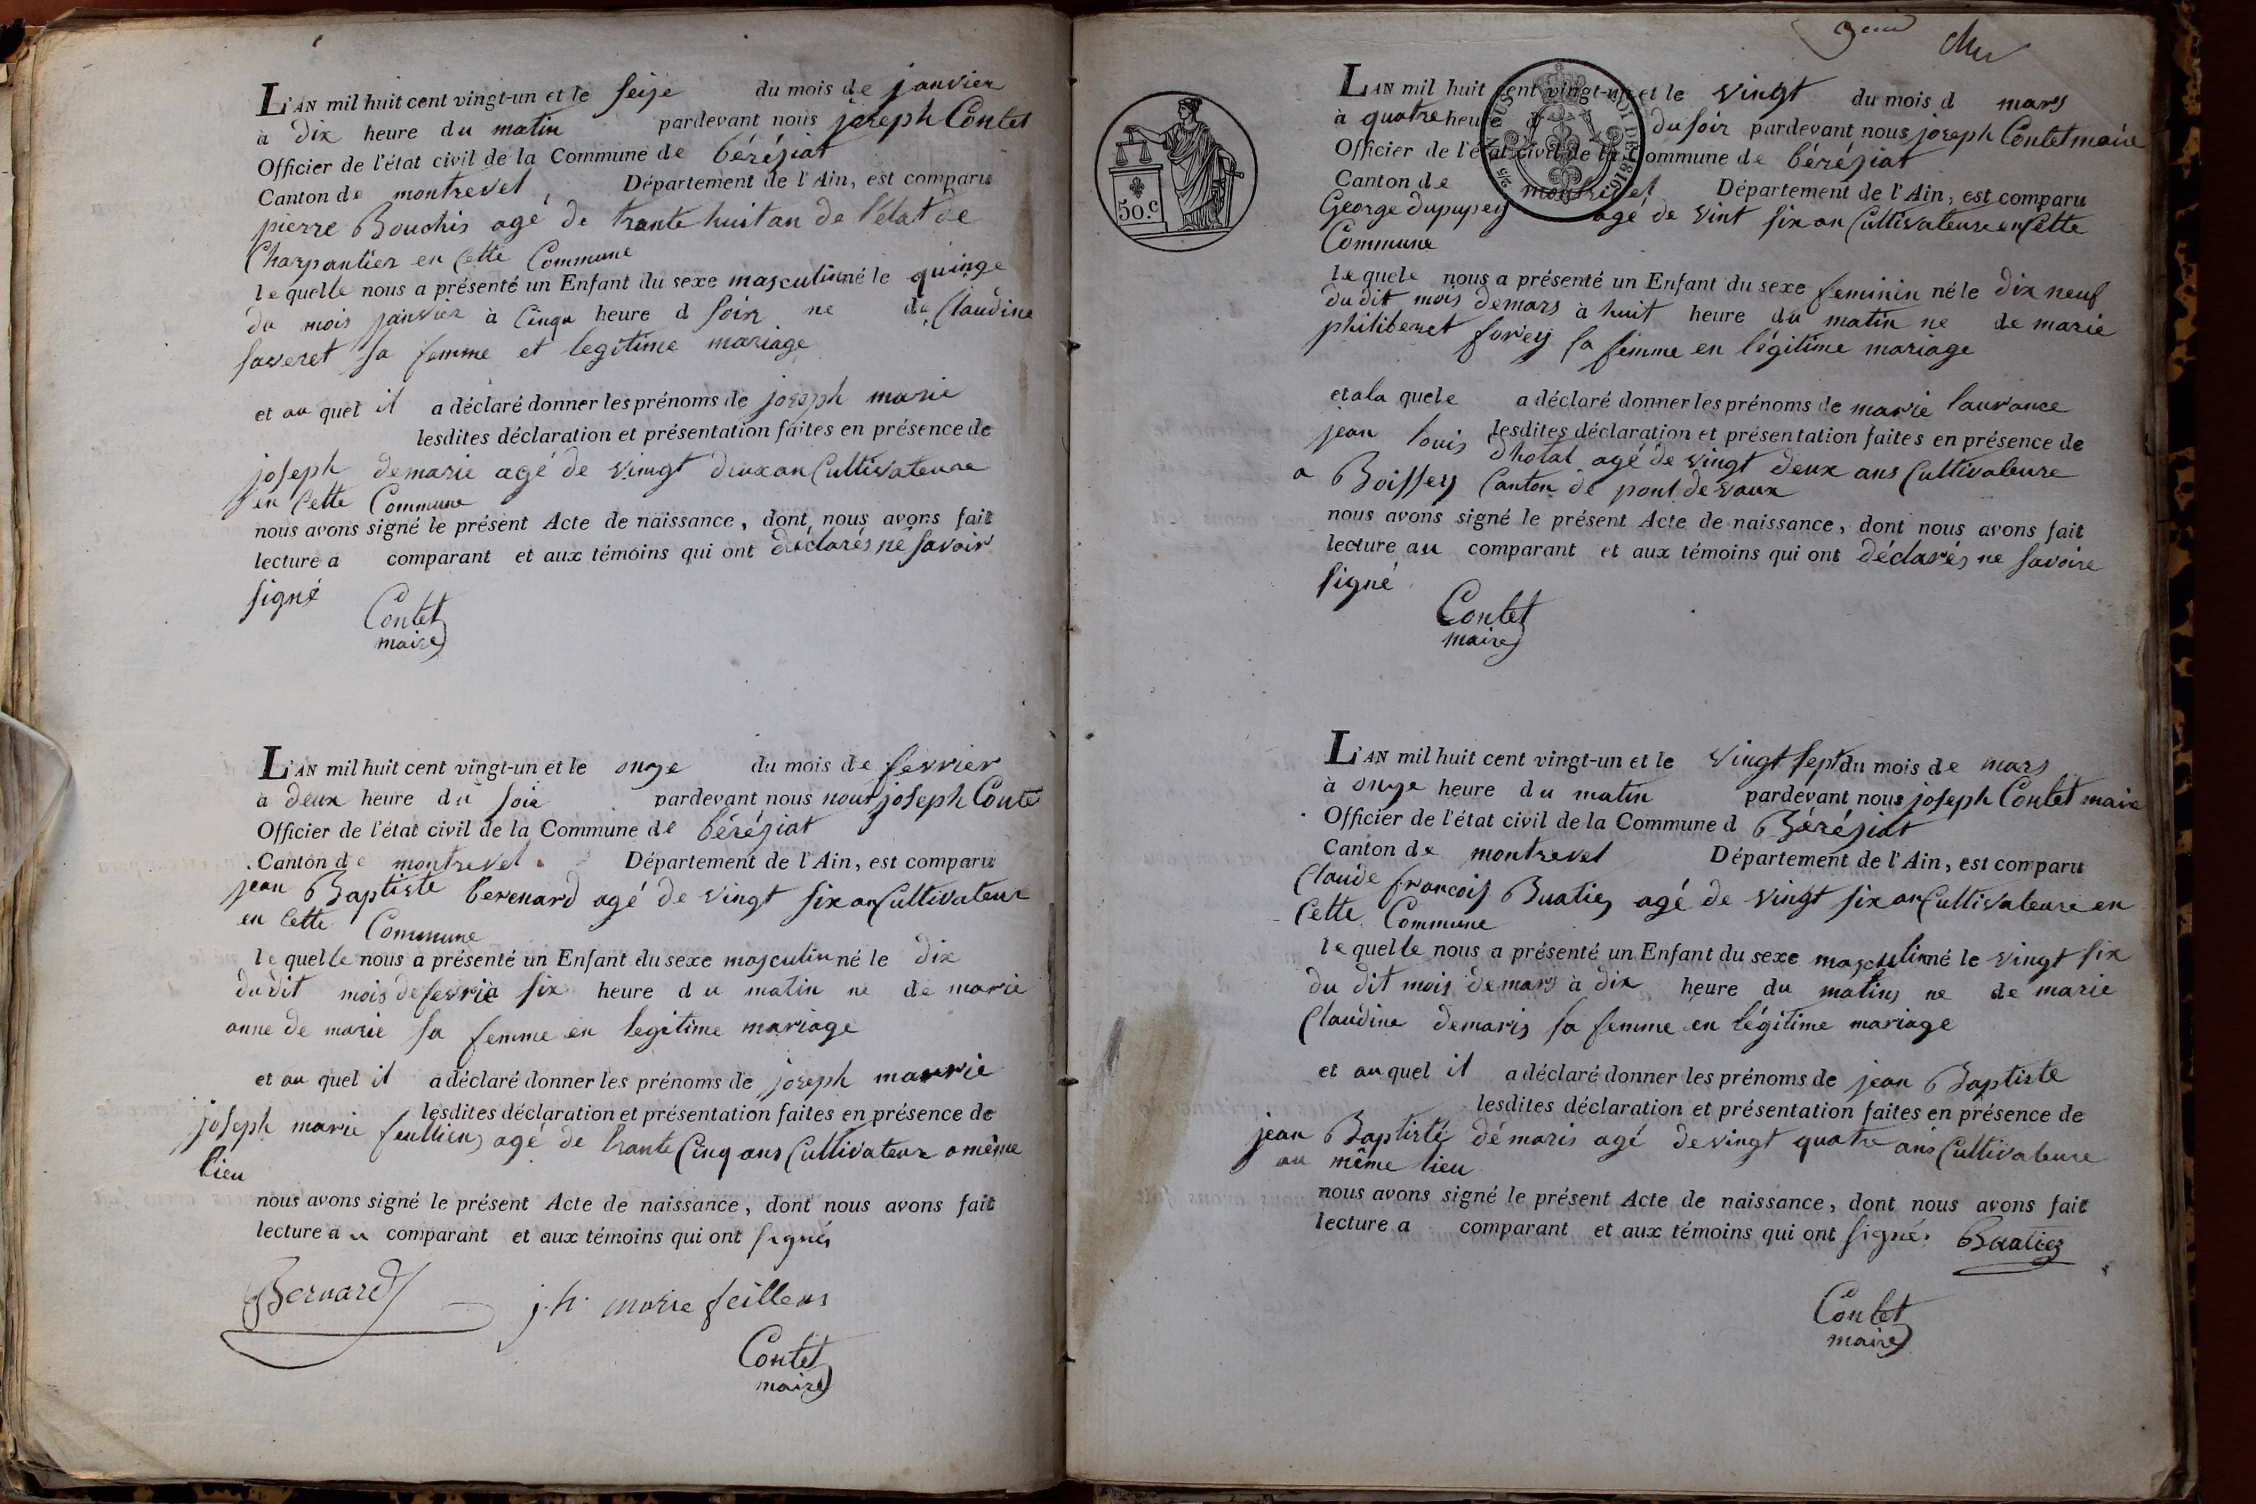 L'AN mil huit cent vingt-un et le seize du mois de janvier
à dix heure du matin pardevant nous joseph Contet
Officier de l'état civil de la Commune de béréziat
Canton de montrevel, Département de l'Ain, est comparu
pierre Bouchis agé de trante huit an de l'état de
Charpantier en cette Commune
lequelle nous a présenté un Enfant du sexe masculin né le quinze
du mois janvier à cinqu heure d soir ne de Claudine
saveret sa femme et legitime mariage
et au quel il a déclaré donner les prénoms de joseph marie
lesdites déclaration et présentation faites en présence de
joseph demarie agé de vingt deux an Cultivateure
en Cette Commune
nous avons signé le présent Acte de naissance, dont nous avons fait
lecture a comparant et aux témoins qui ont déclarés ne savoir
signé
Contet
maire
L'AN mil huit cent vingt-un et le onze du mois de fevrier
à deux heure du soir pardevant nous nous joseph Conte
Officier de l'état civil de la Commune de béréziat
Canton de montrevel. Département de l'Ain, est comparu
jean Baptiste berenard agé de vingt six an Cultivateur
en Cette Commune
lequelle nous a présenté un Enfant du sexe masculin né le dix
du dit mois de fevrie à six heure du matin ne de marie
anne de marie sa femme en legitime mariage
et au quel il a déclaré donner les prénoms de joseph marrie
lesdites déclaration et présentation faites en présence de
joseph marie feulliens agé de trante Cinq ans Cultivateur a même
lieu
nous avons signé le présent Acte de naissance, dont nous avons fait
lecture au comparant et aux témoins qui ont signés
Bernard j.h. marie feillens
Contet
maire
L'AN mil huit cent vingt-un et le vingt du mois d mars
à quatre heure du soir pardevant nous joseph Contet maire
Officier de l'état civil de la Commune de béréziat
Canton de montrevel Département de l'Ain, est comparu
George dupupey agé de vint six an Cultivateure en Cette
Commune
50.c
DE 1816
lequele nous a présenté un Enfant du sexe feminin né le dix neuf
du dit mois de mars à huit heure du matin ne de marie
philiberet forey sa femme en légitime mariage
et a la quele a déclaré donner les prénoms de marie laurance
lesdites déclaration et présentation faites en présence de
jean louis dhotal agé de vingt deux ans Cultivateure
a Boissey Canton de pont de vaux
nous avons signé le présent Acte de naissance, dont nous avons fait
lecture au comparant et aux témoins qui ont déclarés ne savoire
signé
Contet
maire
L'AN mil huit cent vingt-un et le vingt sept du mois de mars
à onze heure du matin pardevant nous joseph Contet maire
Officier de l'état civil de la Commune d Béréziat
Canton de montrevel Département de l'Ain, est comparu
Claude francois Buatiez agé de vingt six an Cultivateure en
Cette Commune
lequelle nous a présenté un Enfant du sexe masculin né le vingt six
du dit mois de mars à dix heure du matin ne de marie
Claudine demaris sa femme en légitime mariage
et au quel il a déclaré donner les prénoms de jean Baptiste
lesdites déclaration et présentation faites en présence de
jean Baptiste démaris agé de vingt quatre ans Cultivateure
au même lieu
nous avons signé le présent Acte de naissance, dont nous avons fait
lecture a comparant et aux témoins qui ont signés Buatiez
Contet
maire